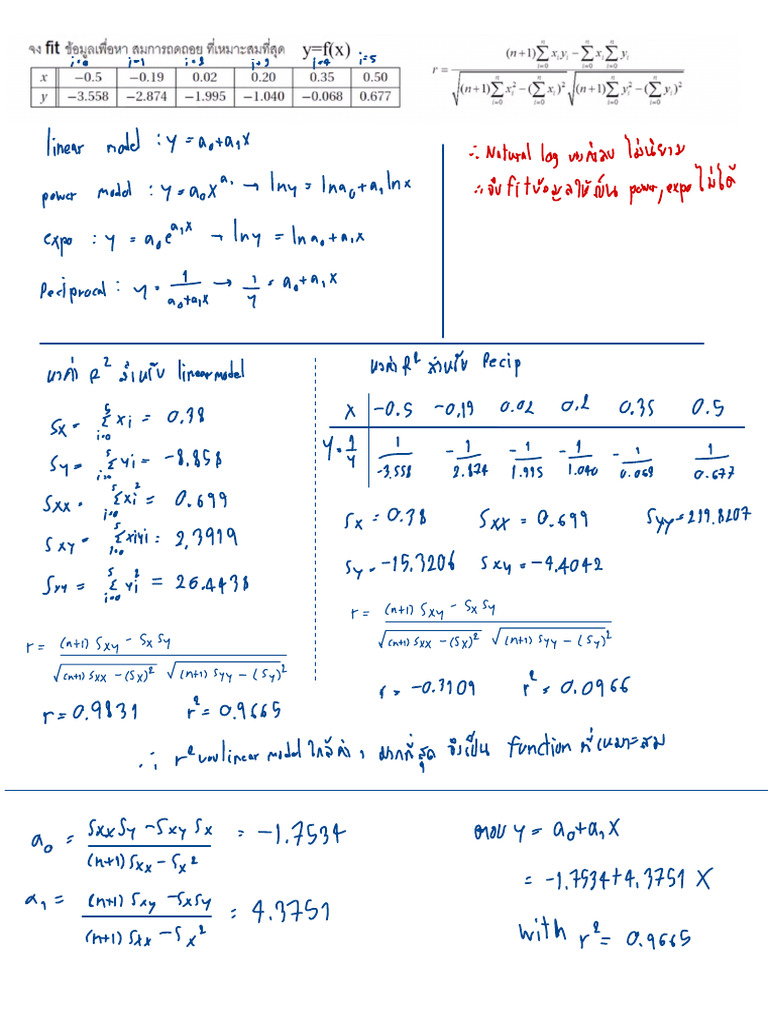 จง fit ข้อมูลเพื่อหา สมการถดถอย ที่เหมาะสมที่สุด y=f(x)
i=0 i=1 i=2 i=3 i=4 i=5
x −0.5 −0.19 0.02 0.20 0.35 0.50
y −3.558 −2.874 −1.995 −1.040 −0.068 0.677
r = ((n+1)∑xᵢyᵢ − ∑xᵢ∑yᵢ) / (√((n+1)∑xᵢ² − (∑xᵢ)²) √((n+1)∑yᵢ² − (∑yᵢ)²))
linear model : y = a₀+a₁x
power model : y = a₀x^a₁ → lny = lna₀+a₁lnx
expo : y = a₀e^(a₁x) → lny = lna₀+a₁x
Reciprocal : y = 1/(a₀+a₁x) → 1/y = a₀+a₁x
∴ Natural log ของค่าลบ ไม่นิยาม
∴ จึง fit ข้อมูลให้เป็น power, expo ไม่ได้
หาค่า R² สำหรับ linear model
Sx = ∑xi = 0.38
Sy = ∑yi = -8.858
Sxx = ∑xi² = 0.699
Sxy = ∑xiyi = 2.3919
Syy = ∑yi² = 26.4438
r = ((n+1)Sxy − SxSy) / (√((n+1)Sxx − (Sx)²) √((n+1)Syy − (Sy)²))
r = 0.9831 r² = 0.9665
หาค่า R² สำหรับ Recip
X -0.5 -0.19 0.02 0.2 0.35 0.5
Y = 1/y 1/-3.558 -1/2.874 -1/1.995 -1/1.040 -1/0.068 1/0.677
Sx = 0.38 Sxx = 0.699 Syy = 219.8207
Sy = -15.3206 Sxy = -4.4042
r = ((n+1)Sxy − SxSy) / (√((n+1)Sxx − (Sx)²) √((n+1)Syy − (Sy)²))
r = -0.3109 r² = 0.0966
∴ r² ของ linear model ใกล้ค่า 1 มากที่สุด จึงเป็น function ที่เหมาะสม
a₀ = (SxxSy − SxySx) / ((n+1)Sxx − Sx²) = -1.7534
a₁ = ((n+1)Sxy − SxSy) / ((n+1)Sxx − Sx²) = 4.3751
ตอบ y = a₀+a₁X
= -1.7534+4.3751 X
with r² = 0.9665